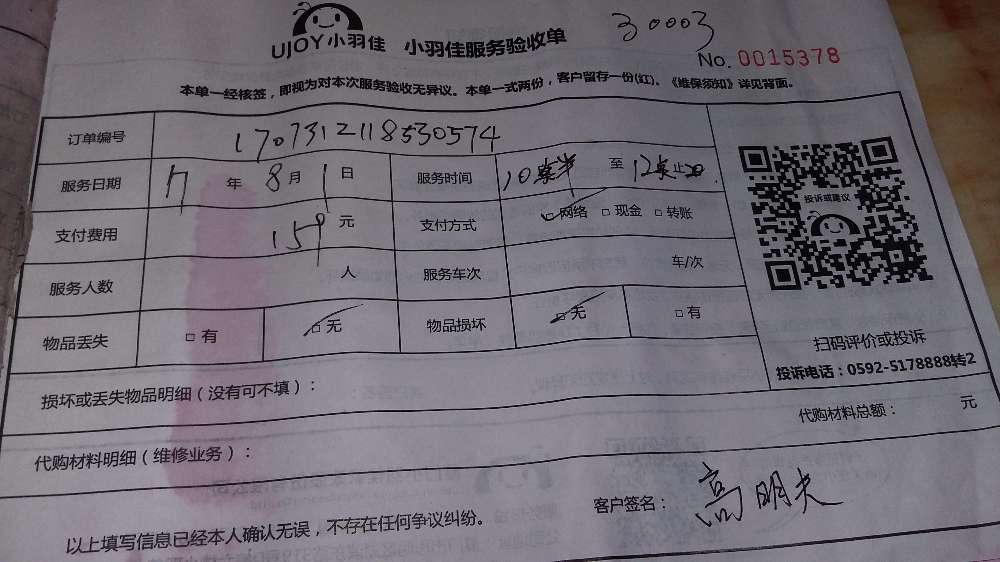 UJOY小羽佳 小羽佳服务验收单 30003
No. 0015378
本单一经核签，即视为对本次服务验收无异议。本单一式两份，客户留存一份(红)。《维保须知》详见背面。
订单编号 1707312118530574
服务日期 17 年 8 月 1 日 服务时间 10点半 至 12点止20
支付费用 159 元 支付方式 网络 现金 转账
服务人数 人 服务车次 车/次
物品丢失 有 无 物品损坏 无 有
投诉或建议
扫码评价或投诉
投诉电话：0592-5178888转2
损坏或丢失物品明细（没有可不填）：
代购材料明细（维修业务）： 代购材料总额： 元
以上填写信息已经本人确认无误，不存在任何争议纠纷。 客户签名： 高明夫